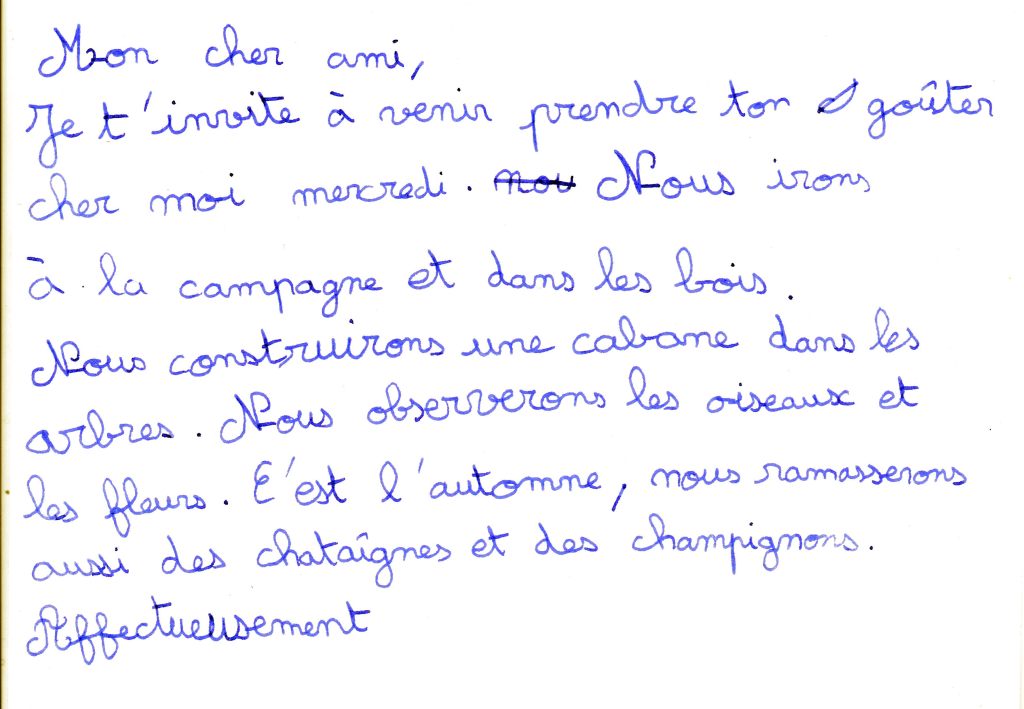 Mon cher ami,
Je t'invite à venir prendre ton goûter
cher moi mercredi. nou Nous irons
à la campagne et dans les bois.
Nous construirons une cabane dans les
arbres. Nous observerons les oiseaux et
les fleurs. C'est l'automne, nous ramasserons
aussi des chataîgnes et des champignons.
Affectueusement